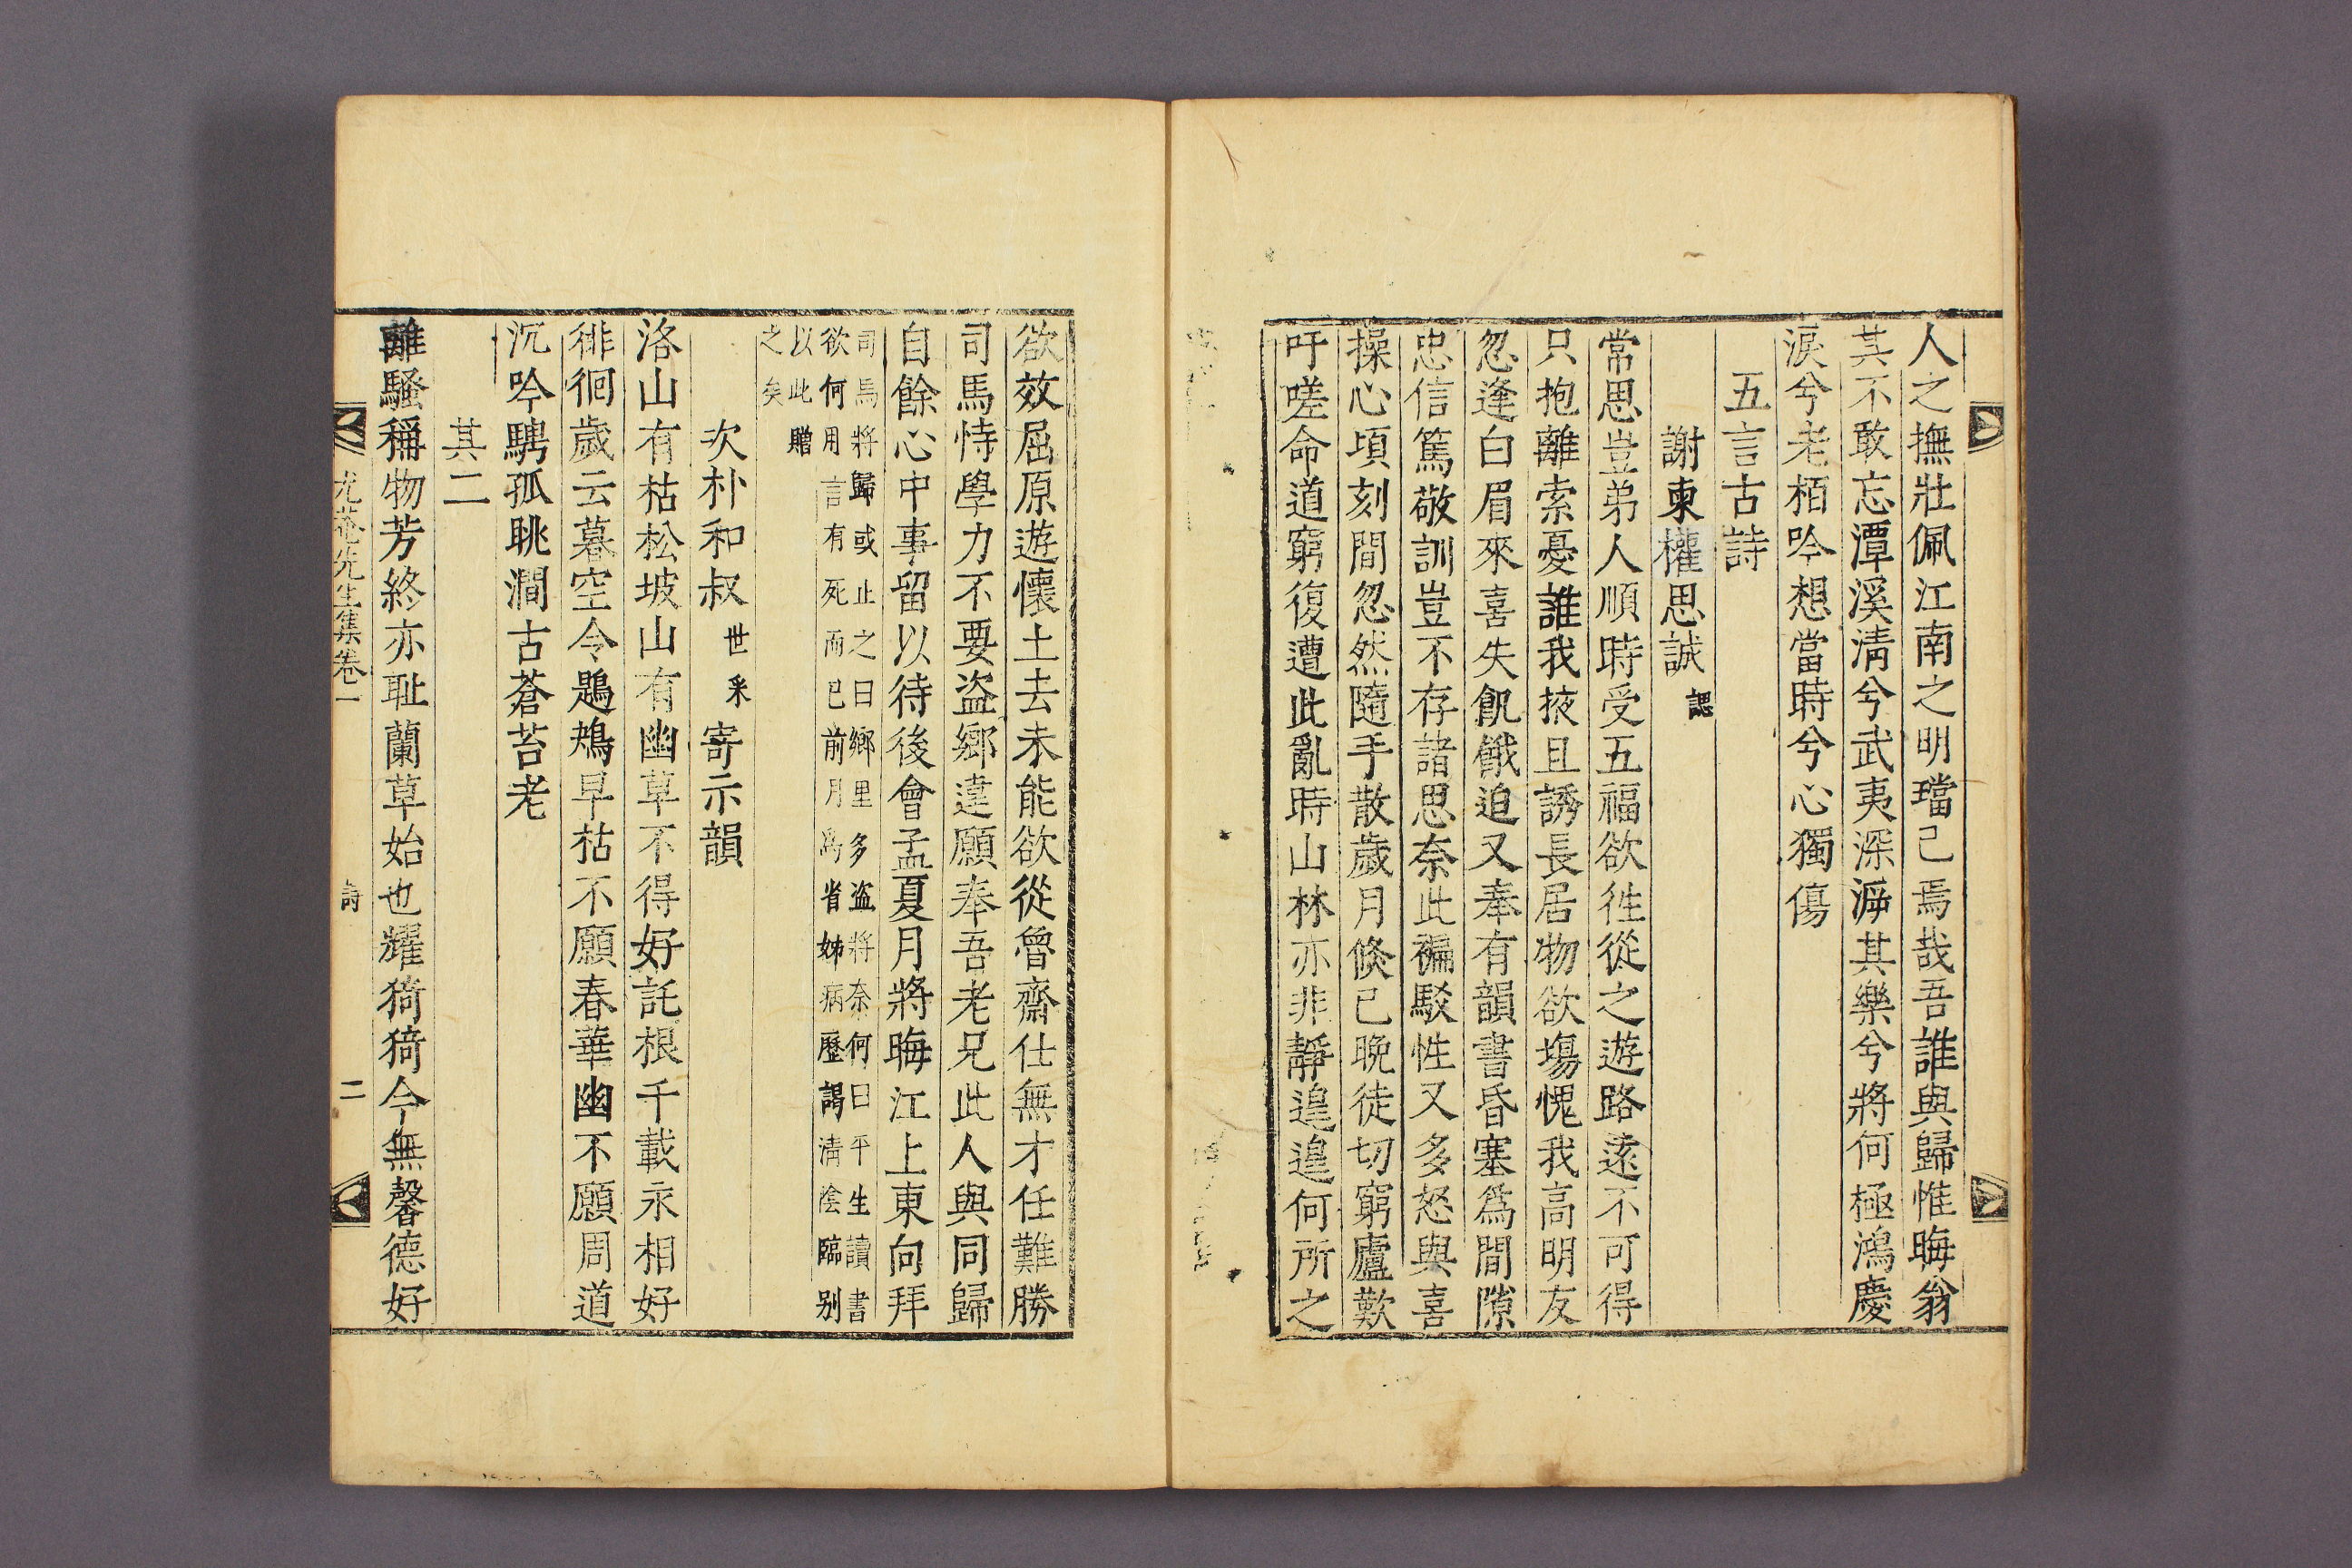 人之撫壯佩江南之明璫已焉哉吾誰與歸惟晦翁
其不敢忘潭溪淸兮武夷深泝其樂兮將何極鴻慶
淚兮老栢吟想當時兮心獨傷
五言古詩
謝柬權思誠諰
常思豈弟人順時受五福欲徃從之遊路遠不可得
只抱離索憂誰我掖且誘長居物欲塲愧我高明友
忽逢白眉來喜失飢餓迫又奉有韻書昏塞爲開隙
忠信篤敬訓豈不存諸思奈此褊駁性又多怒與喜
操心頃刻間忽然隨手散歲月倐已晩徒切窮廬歎
吁嗟命道窮復遭此亂時山林亦非靜遑遑何所之
欲效屈原遊懷土去未能欲從魯齋仕無才任難勝
司馬恃學力不要盜鄕違願奉吾老兄此人與同歸
自餘心中事留以待後會孟夏月將晦江上東向拜
司馬將歸或止之曰鄕里多盜將奈何曰平生讀書
欲何用言有死而已前月爲省姊病歷謁淸陰臨別
以此贈
之矣
次朴和叔世采寄示韻
洛山有枯松坡山有幽草不得好託根千載永相好
徘徊歲云暮空令鶗鴂早枯不願春華幽不願周道
沉吟騁孤眺澗古蒼苔老
其二
離騷稱物芳終亦耻蘭草始也耀猗猗今無馨德好
先生集卷一
詩
二